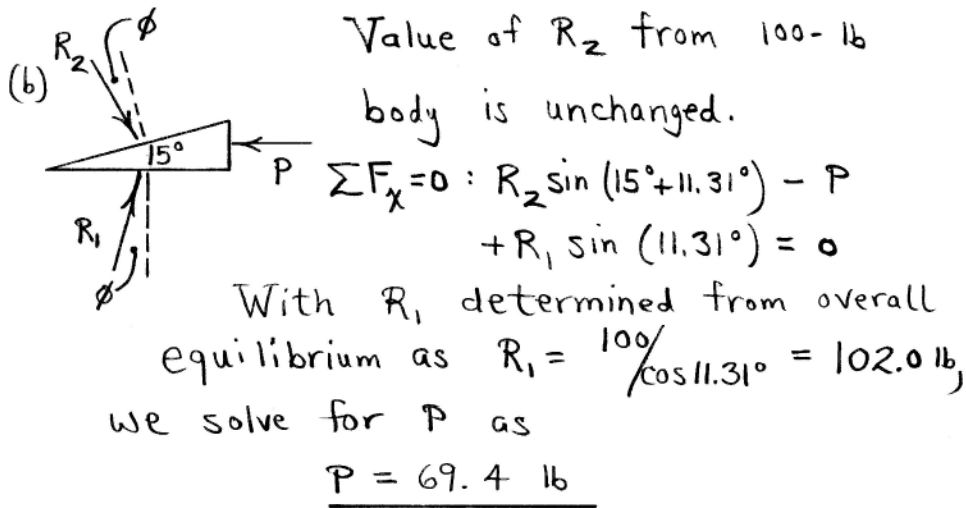 (b)
R₂
ϕ
15°
P
R₁
ϕ
Value of R₂ from 100-lb
body is unchanged.
ΣFₓ=0 : R₂ sin (15°+11.31°) - P
+R₁ sin (11.31°) = 0
With R₁ determined from overall
equilibrium as R₁ = 100/cos 11.31° = 102.0 lb,
we solve for P as
P = 69.4 lb